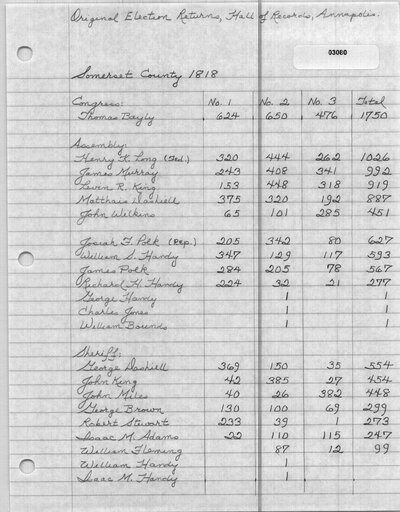 Original Election Returns, Hall of Records, Annapolis.
03080
Somerset County 1818
Congress: No. 1 No. 2 No. 3 Total
Thomas Bayly 624 650 476 1750
Assembly:
Henry K. Long (Fed.) 320 444 262 1026
James Murray 243 408 341 992
Levin R. King 153 448 318 919
Matthais Dashiell 375 320 192 887
John Wilkins 65 101 285 451
Josiah F. Polk (Rep.) 205 342 80 627
William S. Handy 347 129 117 593
James Polk 284 205 78 567
Richard H. Handy 224 32 21 277
George Handy 1 1
Charles Jones 1 1
William Bounds 1 1
Sheriff:
George Dashiell 369 150 35 554
John King 42 385 27 454
John Miles 40 26 382 448
George Brown 130 100 69 299
Robert Stewart 233 39 1 273
Isaac M. Adams 22 110 115 247
William Fleming 87 12 99
William Handy 1
Isaac M. Handy 1